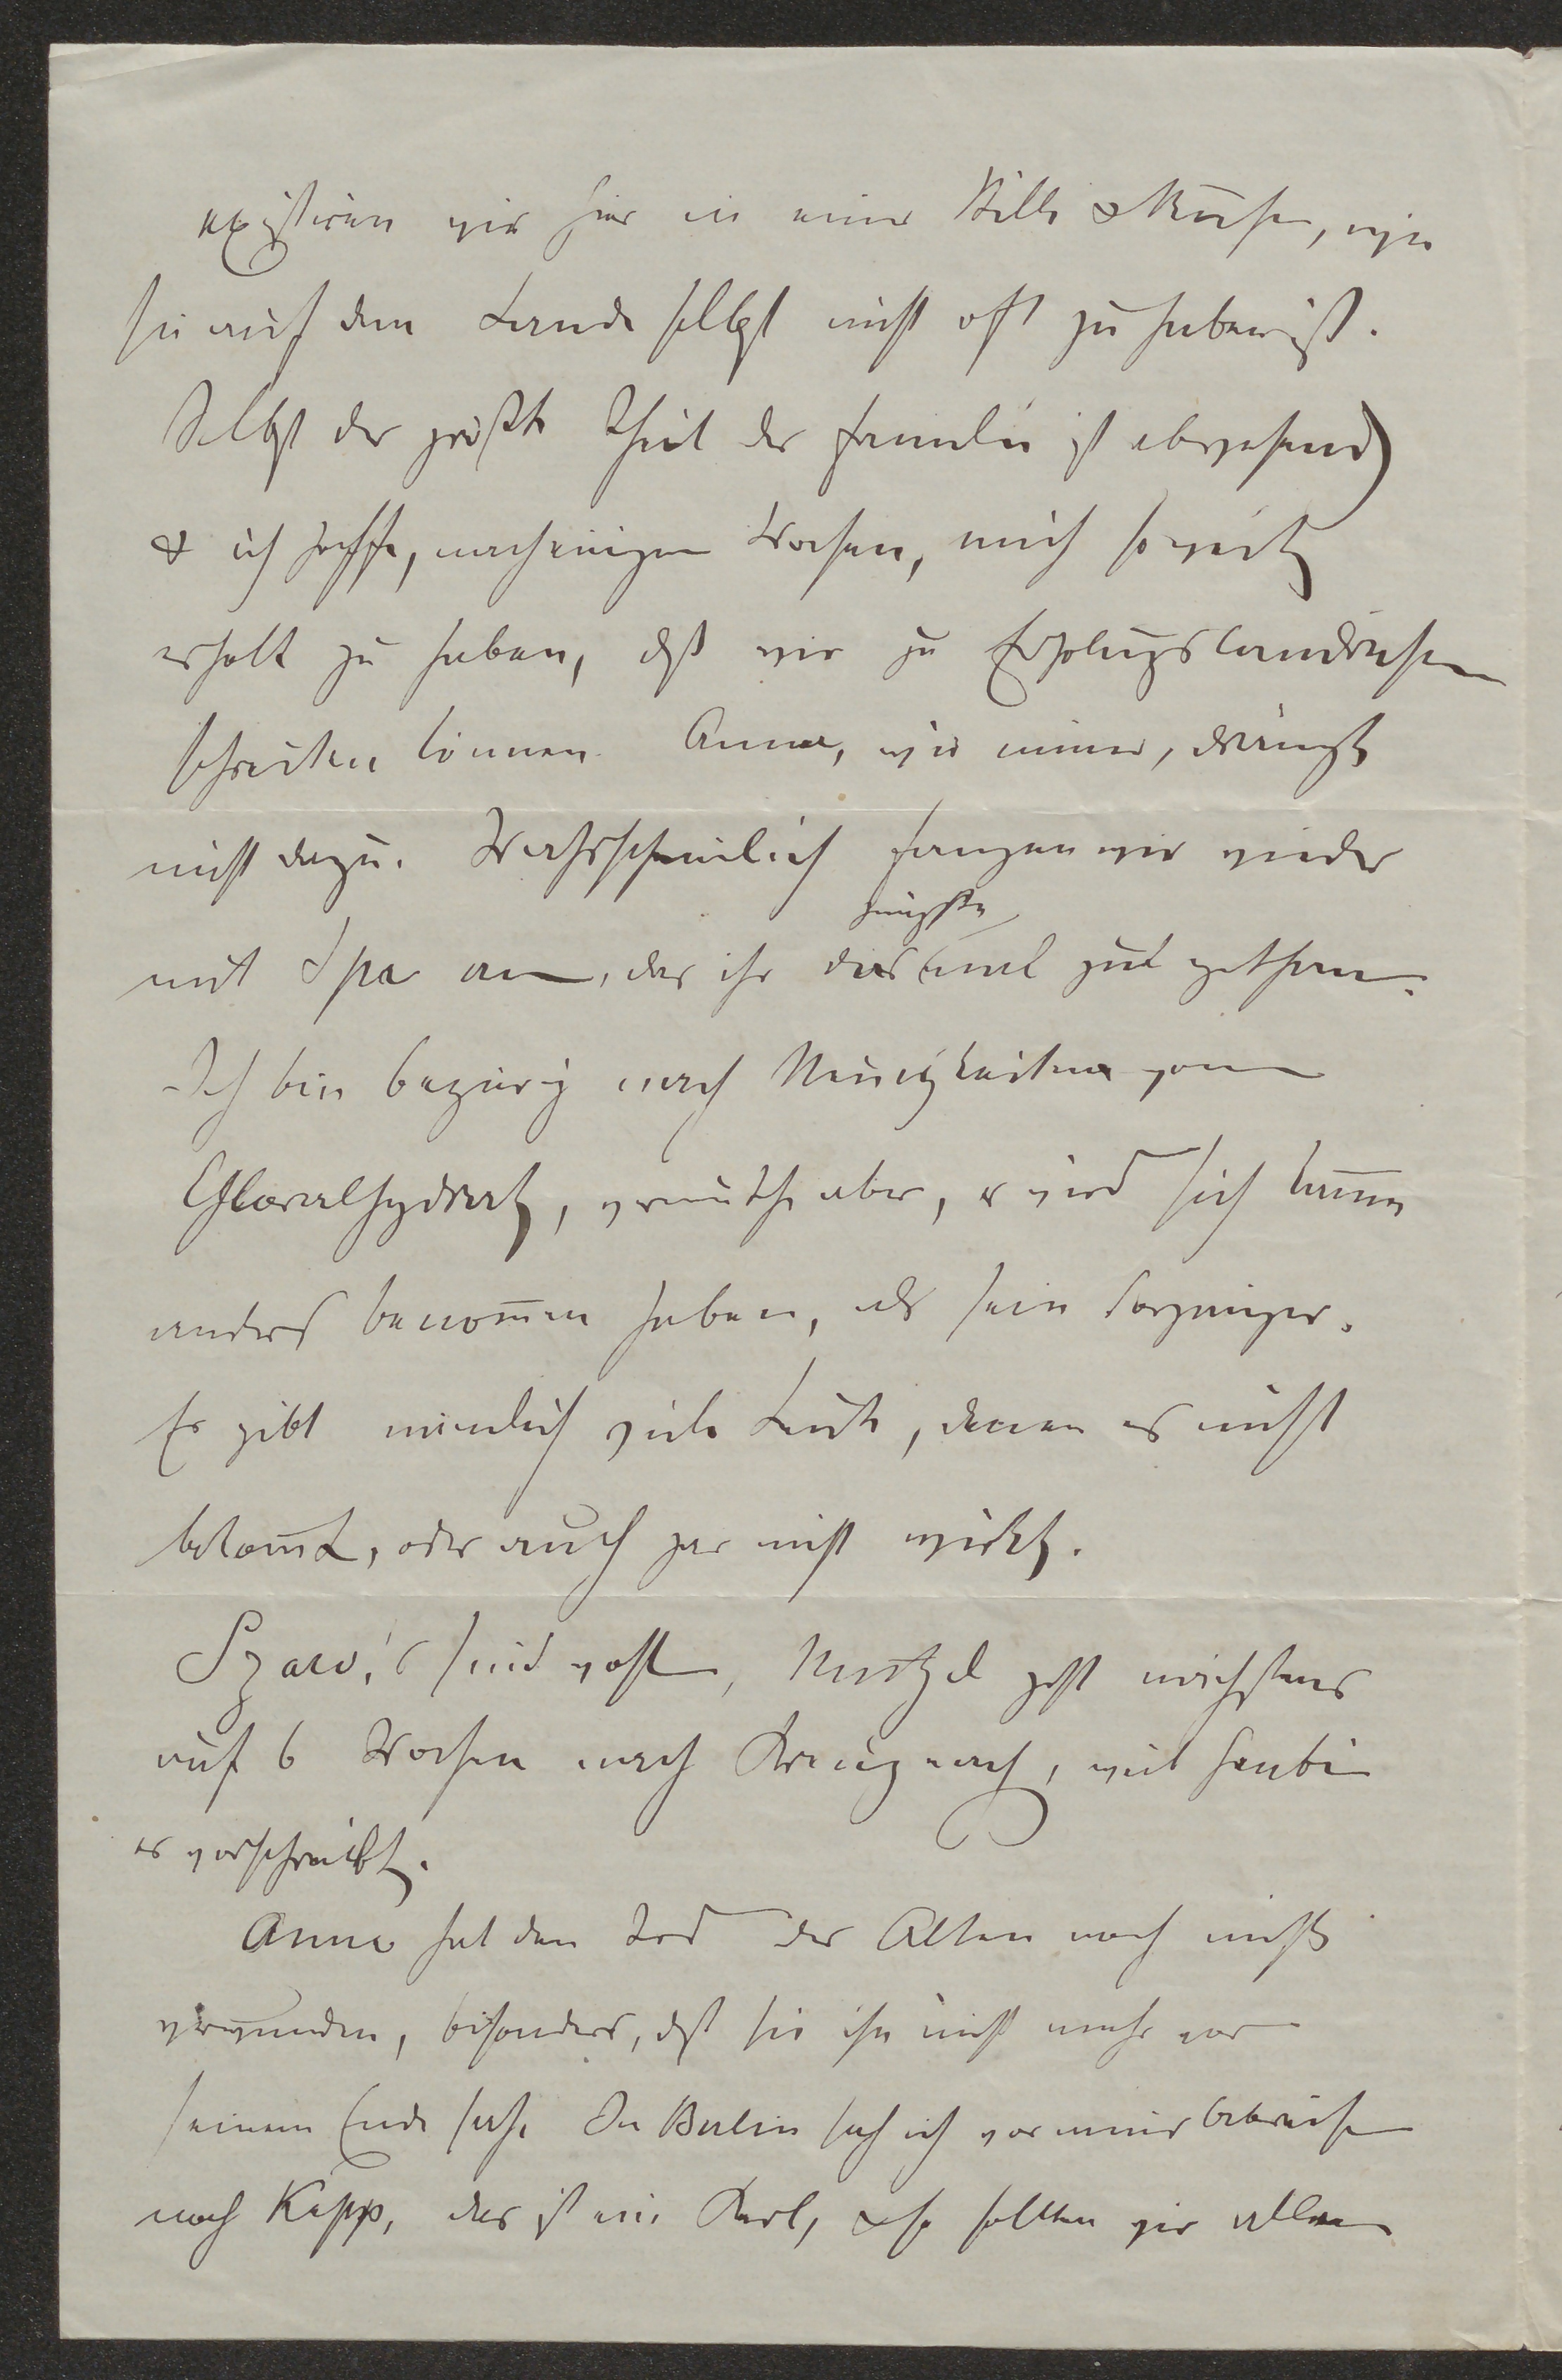 existiren wir hier in einer Stille & Ruhe, wie
sie auf dem Lande selbst nicht oft zu haben ist.
Selbst der größte Theil der Familie ist abwesend)
& ich hoffe, nach einigen Wochen, mich so weit
erholt zu haben, dß wir zu Erholungslandreisen
schreiten können. Anna, wie immer, drängt
nicht dazu. Wahrscheinlich fangen wir wieder
mit Spa an, das ihr das jüngste mal gut gethan.
Ich bin begierig nach Neuigkeiten vom
Chloralhydrat, vermuthe aber, er wird sich kaum
anders benom̅en haben, als sein Vorgänger.
Es gibt nämlich viele Leute, denen es nicht
bekom̅t, oder auch gar nicht wirkt.
Szarv.'s sind wohl, geht nächstens
auf 6 Wochen nach Kreuznach, weil
es vorschreibt.
Anna hat den Tod des Alten noch nicht
verwunden, besonders, dß sie ihn nicht mehr vor
seinem Ende sah. In Berlin sah ich vor meiner Abreise
noch Kapp, das ist ein Kerl, & so sollten wir alle